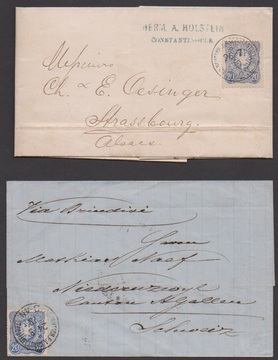 HERM. A. HOLSTEIN
CONSTANTINOPLE
20
Messieurs
Ch. & E. Oesinger
Strassbourg.
Alsace
Via Brindisi
Herrn
Naef
Niederuzwyl
Canton St Gallen
Schweiz
20